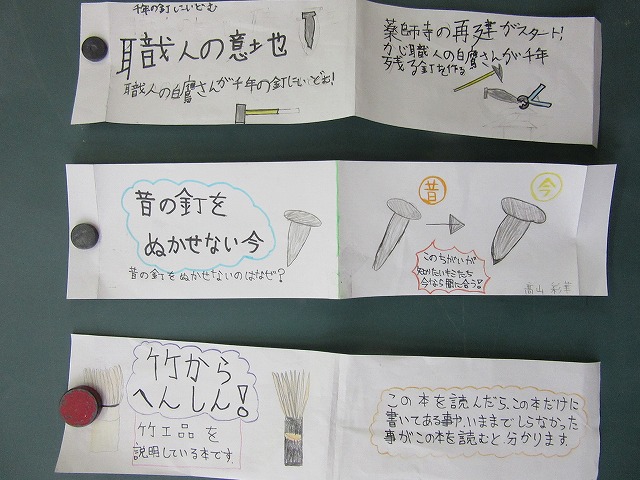 千年の釘にいどむ
職人の意土也
職人の白鷹さんが千年の釘にいどむ!
薬師寺の再建がスタート!
かじ職人の白鷹さんが千年
残る釘を作る
昔の釘を
ぬかせない今
昔の釘をぬかせないのはなぜ?
昔
今
このちがいが
知りたいきみたち
今なら間に合う!!
高山 彩華
竹から
へんしん!
竹工品を
説明している本です。
この本を読んだら、この本だけに
書いてある事や、いままでしらなかった
事がこの本を読むと分かります